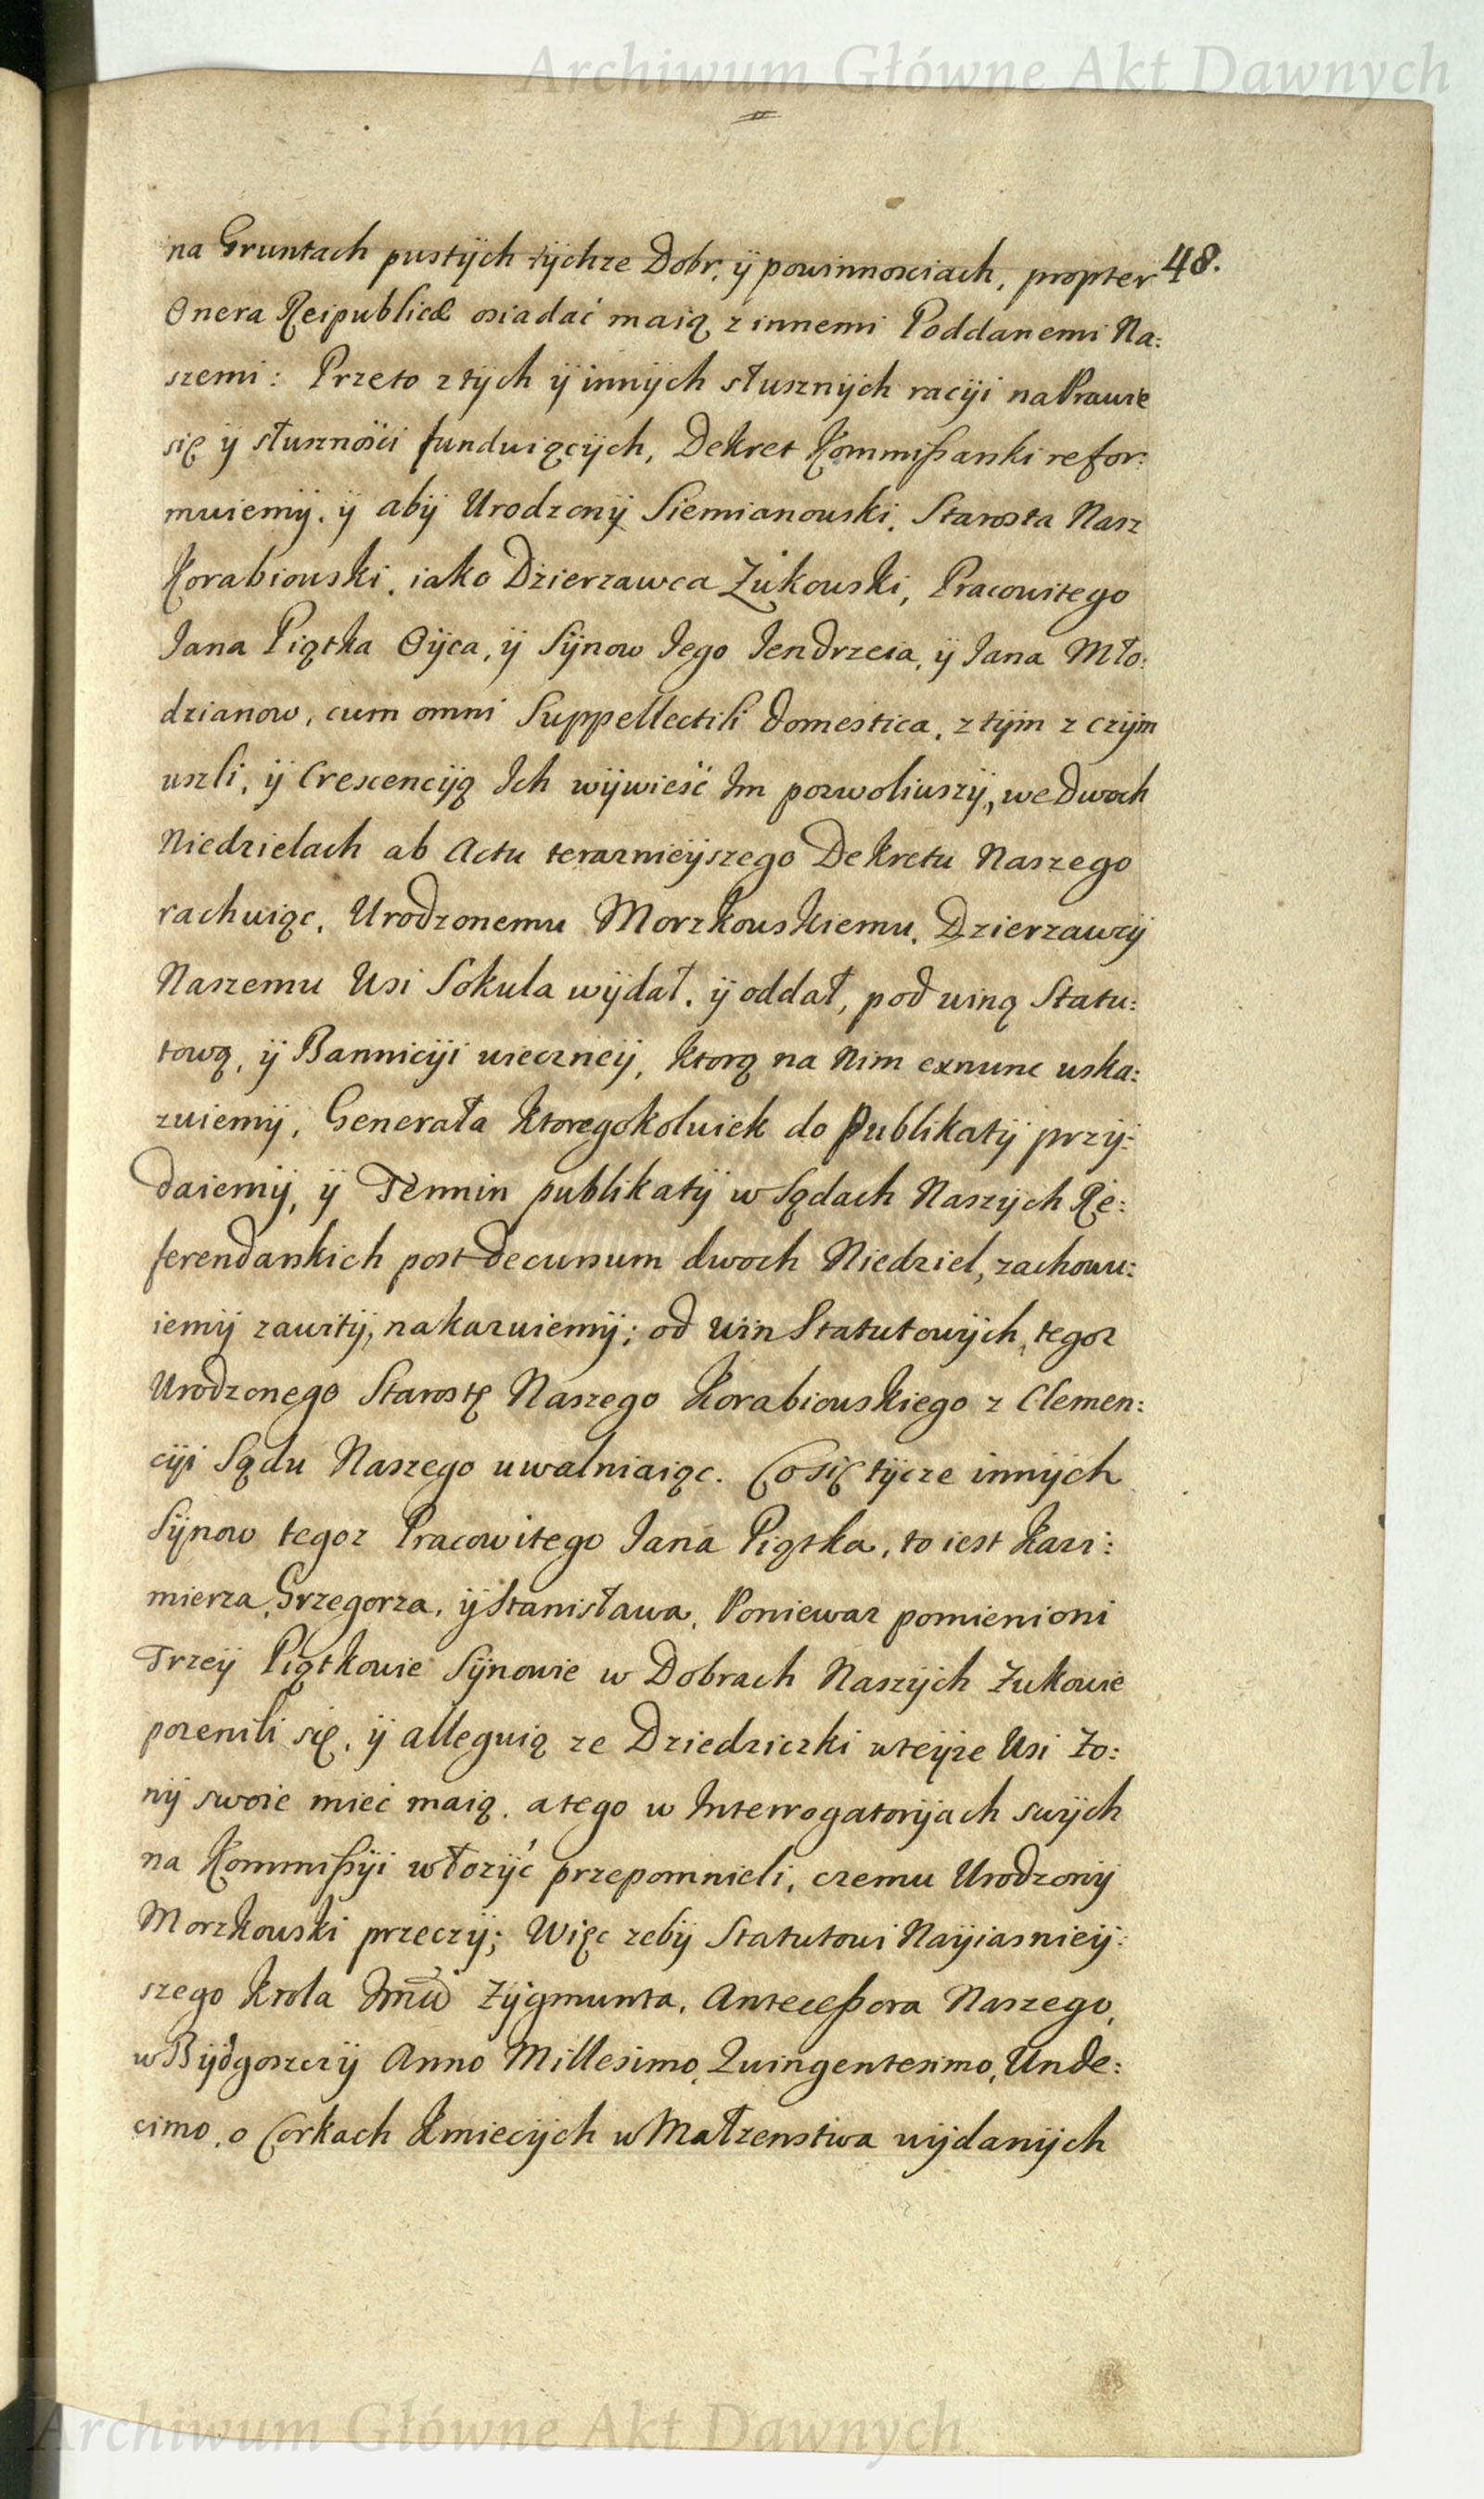 Archiwum Główne Akt Dawnych
48.
na Gruntach pustÿch tÿchze Dobr, ÿ powinnosciach, propter
Onera Reipublicæ osiadać maią z innemi Poddanemi Na:
szemi: Przeto z tÿch ÿ innÿch słusznÿch racÿi na Prawie
się ÿ słusznośći funduiącÿch, Dekret Kommißarski refor:
muiemÿ, ÿ abÿ Urodzonÿ Siemianowski, Starosta Nasz
Korabiowski, iako Dzierzawca Żukowski, Pracowitego
Jana Piątka Oÿca, ÿ Sÿnow Jego Jendrzeia, ÿ Jana Mło:
dzianow, cum omni Suppellectili domestica, z tÿm z czÿm
uszli, ÿ Crescencÿą Ich wÿwieść Im pozwoliwszÿ, we dwoch
Niedzielach ab Actu teraznieÿszego Dekretu Naszego
rachuiąc, Urodzonemu Morzkowskiemu, Dzierzawcÿ
Naszemu Wsi Sokula wÿdał, ÿ oddał, pod winą Statu:
tową, ÿ Bannicÿi wiecznéÿ, ktorą na Nim exnunc wska:
zuiemÿ, Generała ktoregokolwiek do Publikatÿ przÿ:
daiemÿ, ÿ Termin publikatÿ w Sądach Naszÿch Re:
ferendarskich post decursum dwoch Niedziel, zachowu:
iemÿ zawitÿ, nakazuiemÿ; od win Statutowÿch, tegoz
Urodzonego Starostę Naszego Korabiowskiego z Clemen:
cÿi Sądu Naszego uwalniaiąc. Co się tÿcze innÿch
Sÿnow tegoz Pracowitego Jana Piątka, to iest Kazi:
mierza, Grzegorza, ÿ Stanisława, Poniewaz pomienioni
Trzeÿ Piątkowie Sÿnowie w Dobrach Naszÿch Zukowie
pozenili się, ÿ alleguią ze Dziedziczki wteÿże Wsi Żo:
nÿ swoie mieć maią, a tego w Interrogatorÿach swÿch
na Kommißÿi włozÿć przepomnieli, czemu Urodzonÿ
Morzkowski przeczÿ; Więc zebÿ Statutowi Naÿiasnieÿ:
szego Krola Jmći Zÿgmunta, Anteceßora Naszego,
w Bÿdgoszczÿ Anno Millesimo, Quingentesimo, Unde:
cimo, o Corkach Kmiecÿch w Małzenstwa wÿdanÿch
Archiwum Główne Akt Dawnych